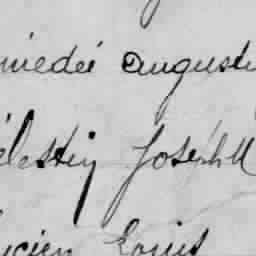 médéé Augusti
élestin Joseph M
ucien Louis